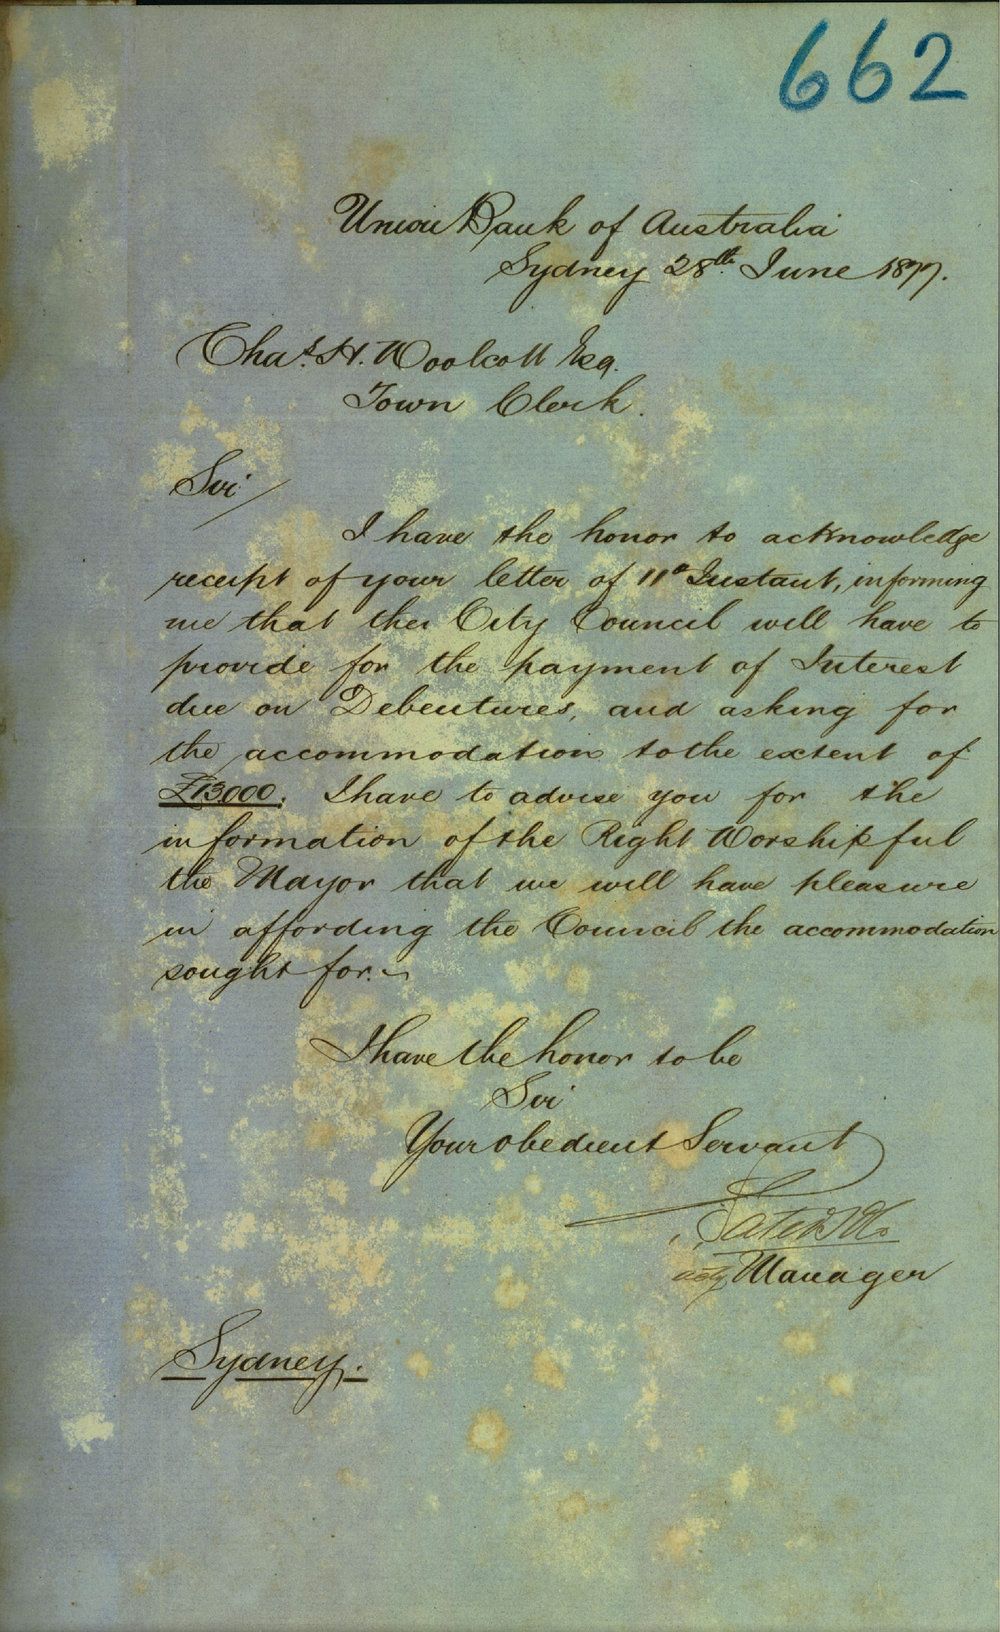 662
Union Bank of Australia
Sydney 28th June 1877.
Chas. H. Woolcott Esq.
Town Clerk.
Sir
I have the honor to acknowledge
receipt of your letter of 11th Instant, informing
me that the City Council will have to
provide for the payment of Interest
due on Debentures, and asking for
the accommodation to the extent of
£13,000. I have to advise you for the
information of the Right Worshipful
the Mayor that we will have pleasure
in affording the Council the accommodation
sought for.
I have the honor to be
Sir
Your obedient Servant
actg Manager
Sydney.